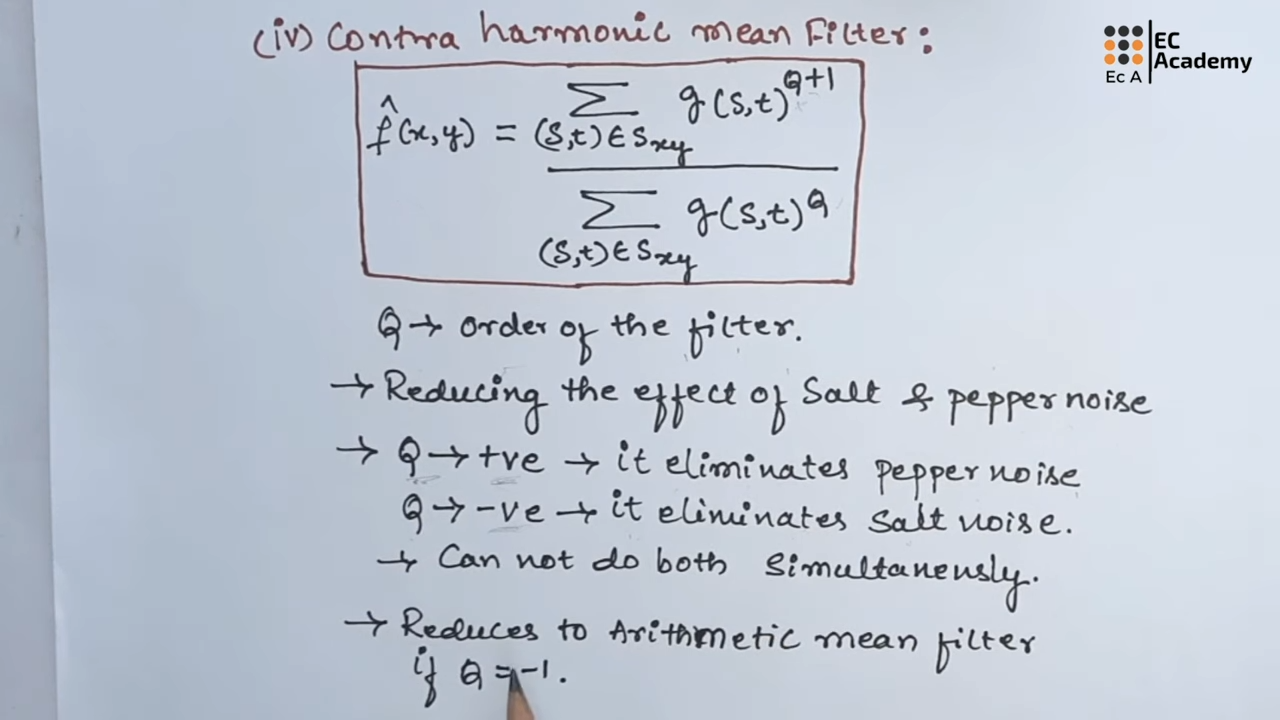 (iv) Contra harmonic mean Filter:
EC
Academy
Ec A
f̂(x,y) = Σ(s,t)∈Sxy g(s,t)^Q+1
Σ(s,t)∈Sxy g(s,t)^Q
Q → order of the filter.
→ Reducing the effect of Salt & pepper noise
→ Q → +ve → it eliminates pepper noise
Q → -ve → it eliminates Salt noise.
→ Can not do both Simultanenusly.
→ Reduces to Arithmetic mean filter
if Q = -1.